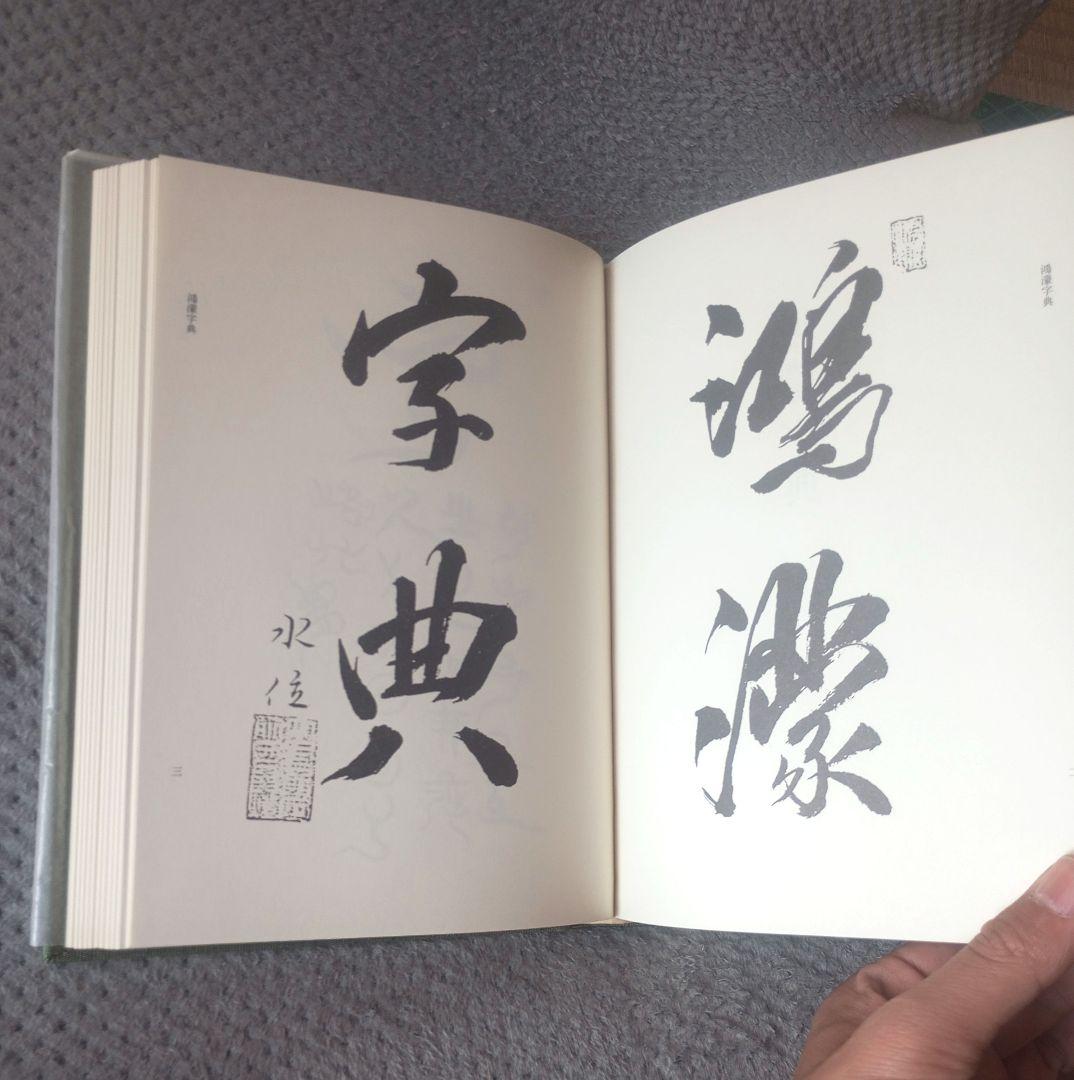 鴻濛字典
鴻濛
鴻濛字典
字典
水位
三